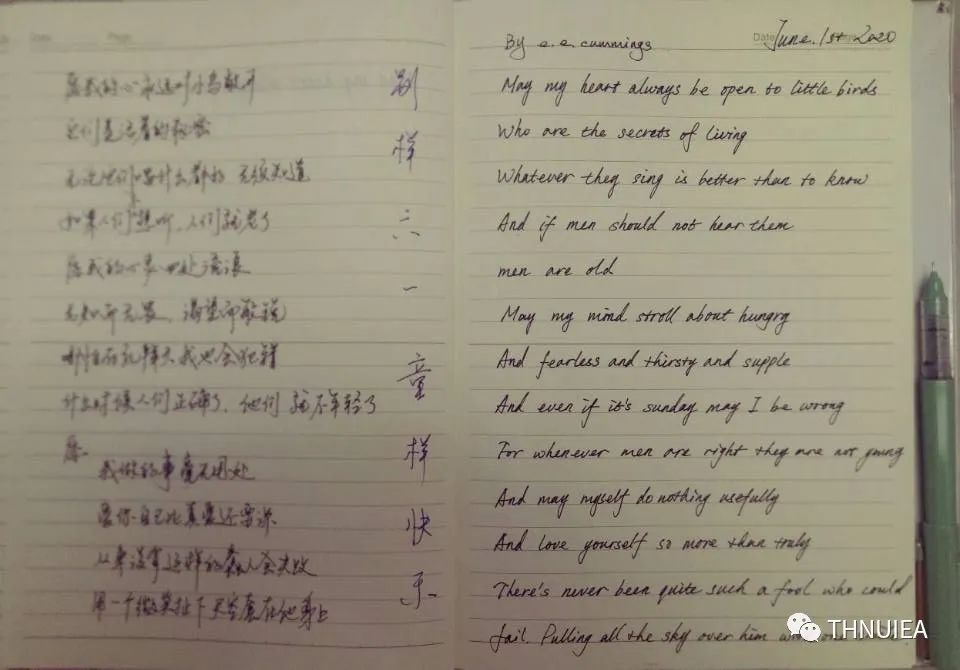 愿我的心永远对小鸟敞开
它们是活着的秘密
无论他们唱什么都 无须知道
如果人们 听,人们就老了
愿我的心 四处流浪
无知而无畏,渴望而敏锐
哪怕在礼拜天我也会犯错
什么时候人们正确了,他们 就不年轻了
愿
我做的事毫无用处
爱你自己比真爱还要深
从 这样的 人会失败
用一个微笑扯下天空盖在他身上
别样六一 童样快乐
Date June. 1st 2020
By e.e.cummings
May my heart always be open to little birds
Who are the secrets of living
Whatever they sing is better than to know
And if men should not hear them
men are old
May my mind stroll about hungry
And fearless and thirsty and supple
And even if it's sunday may I be wrong
For whenever men are right they are not young
And may myself do nothing usefully
And love yourself so more than truly
There's never been quite such a fool who could
fail. Pulling all the sky over him
THNUIEA